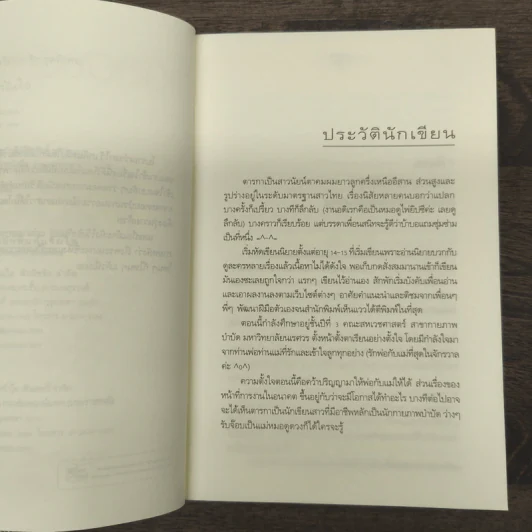 ประวัตินักเขียน
ดารกาเป็นสาวนัยน์ตาคมผมยาวลูกครึ่งเหนืออีสาน ส่วนสูงและ
รูปร่างอยู่ในระดับมาตรฐานสาวไทย เรื่องนิสัยหลายคนบอกว่าแปลก
บางครั้งก็เปรี้ยว บางทีก็ลึกลับ (งานอดิเรกคือเป็นหมอดูไพ่ยิปซีค่ะ เลยดู
ลึกลับ) บางคราวก็เรียบร้อย แต่บรรดาเพื่อนสนิทจะรู้ดีว่าบ้าบอแถมซุ่มซ่าม
เป็นที่หนึ่ง ~^-^~
เริ่มหัดเขียนนิยายตั้งแต่อายุ 14-15 ที่เริ่มเขียนเพราะอ่านนิยายบวกกับ
ดูละครหลายเรื่องแล้วเนื้อหาไม่ได้ดังใจ พอเก็บกดสั่งสมมานานเข้าก็เขียน
มันเองซะเลยถูกใจกว่า แรกๆ เขียนไว้อ่านเอง สักพักเริ่มบังคับเพื่อนอ่าน
และเอาผลงานลงตามเว็บไซต์ต่างๆ อาศัยคำแนะนำและติชมจากเพื่อนๆ
พี่ๆ พัฒนาฝีมือตัวเองจนสำนักพิมพ์เห็นแววได้ตีพิมพ์ในที่สุด
ตอนนี้กำลังศึกษาอยู่ชั้นปีที่ 3 คณะสหเวชศาสตร์ สาขากายภาพ
บำบัด มหาวิทยาลัยนเรศวร ตั้งหน้าตั้งตาเรียนอย่างตั้งใจ โดยมีกำลังใจมา
จากท่านพ่อท่านแม่ที่รักและเข้าใจลูกทุกอย่าง (รักพ่อกับแม่ที่สุดในจักรวาล
ค่ะ ^o^)
ความตั้งใจตอนนี้คือคว้าปริญญามาให้พ่อกับแม่ให้ได้ ส่วนเรื่องของ
หน้าที่การงานในอนาคต ขึ้นอยู่กับว่าจะมีโอกาสได้ทำอะไร บางทีต่อไปอาจ
จะได้เห็นดารกาเป็นนักเขียนสาวที่มีอาชีพหลักเป็นนักกายภาพบำบัด ว่างๆ
รับจ๊อบเป็นแม่หมอดูดวงก็ได้ใครจะรู้